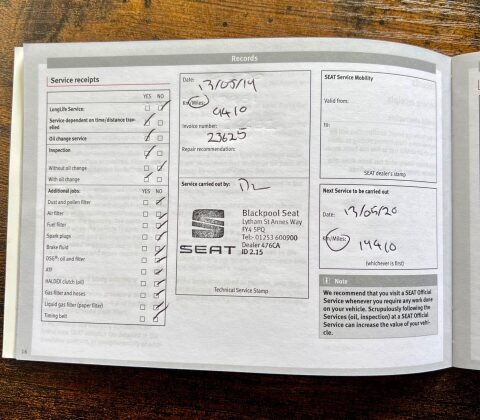 Records
Service receipts
YES NO
LongLife Service:
Service dependent on time/distance trav-
elled
Oil change service
Inspection
Without oil change
With oil change
Additional jobs: YES NO
Dust and pollen filter
Air filter
Fuel filter
Spark plugs
Brake fluid
DSG®: oil and filter
ATF
HALDEX clutch (oil)
Gas filter and hoses
Liquid gas filter (paper filter)
Timing belt
Date:
13/05/19
Km/Miles:
9410
Invoice number:
23625
Repair recommendation:
Service carried out by:
SEAT
Blackpool Seat
Lytham St Annes Way
FY4 5PQ
Tel:- 01253 600900
Dealer 476CA
ID 2.15
Technical Service Stamp
SEAT Service Mobility
Valid from:
to:
SEAT dealer's stamp
Next Service to be carried out
Date:
13/05/20
Km/Miles:
19410
(whichever is first)
Note
We recommend that you visit a SEAT Official
Service whenever you require any work done
on your vehicle. Scrupulously following the
Services (oil, inspection) at a SEAT Official
Service can increase the value of your vehi-
cle.